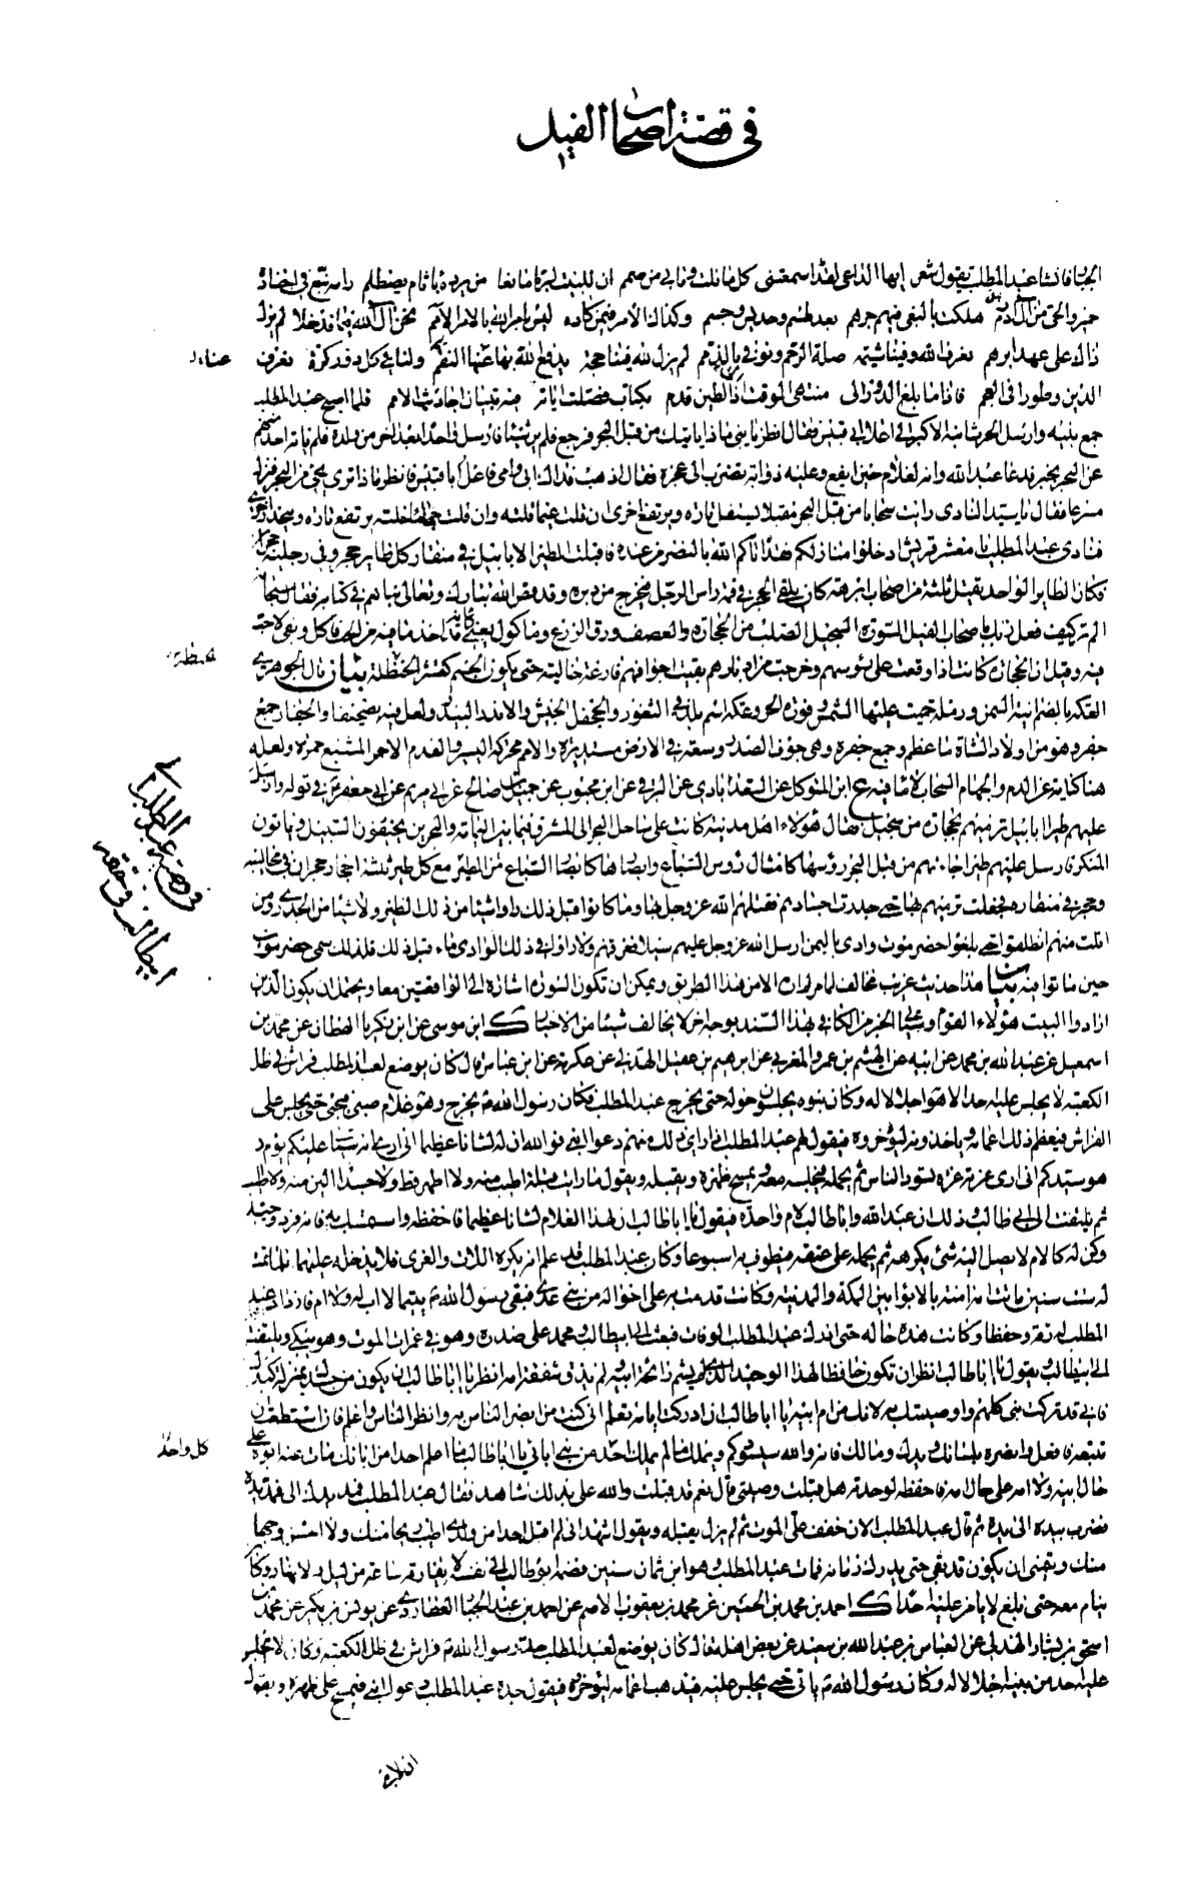 في قصة اصحاب الفيل
فانشا عبد المطلب يقول شعر ايها الداعي لقد اسمعتني كل ما قلت وما بي من صمم ان للبيت لربا مانعا من يرده باثام يصطلم رامه تبع في اجناده
حمير والحي من آل قدم هلكت بالبغي فيهم جرهم بعد طسم وجديس وجسم وكذاك الأمر فيمن كاده ليس امر الله بالامر الأمم نحن آل الله فيما قد خلا لم يزل
ذاك على عهد ابرهم نعرف الله وفينا شيمة صلة الرحم ونوفي بالذمم لم يزل لله فينا حجة يدفع الله بها عنا النقم ولنا في كل دور كرة نعرف
الدين وطورا في العجم فاذا ما بلغ الدور الى منتهى الوقت اتى طين قدم بكتاب فصلت اياته فيه تبيان احاديث الامم فلما اصبح عبد المطلب
جمع بنيه وارسل الحرث ابنه الاكبر في اعلى ابي قبيس فقال انظر يا بني ماذا ياتيك من قبل البحر فرجع فلم ير شيئا فارسل واحدا بعد اخر من ولده فلم ياته احد منهم
عن البحر بخبر فدعا عبد الله وانه لغلام حين ايفع وعليه ذوابة تضرب الى عجزه فقال اذهب فداك ابي وامي فاعل ابا قبيس فانظر ماذا ترى يجيء من البحر فنزل
مسرعا فقال يا سيد النادي رايت سحابا من قبل البحر مقبلا يستفل تارة ويرتفع اخرى ان قلت غيما قلته وان قلت جهاما خلته يرتفع تارة وينحدر اخرى
فنادى عبد المطلب يا معشر قريش ادخلوا منازلكم فقد اتاكم الله بالنصر من عنده فاقبلت الطير الابابيل في منقار كل طاير حجر وفي رجليه حجران
فكان الطاير الواحد يقتل ثلثة من اصحاب ابرهة كان يلقي الحجر في قمة راس الرجل فيخرج من دبره وقد قص الله تبارك وتعالى نباهم في كتابه فقال سبحانه
الم تر كيف فعل ربك باصحاب الفيل السورة السجيل الصلب من الحجارة والعصف ورق الزرع وماكول يعني كانه قد اخذ ما فيه من الحب فاكل وبقي لا حب
فيه وقيل ان الحجارة كانت اذا وقعت على رؤسهم وخرجت من ادبارهم بقيت اجوافهم فارغة خالية حتى يكون الجسم كقشر الحنظلة بيان قال الجوهري
حفر وهو من اولاد الشاة ما عظم وجمع جفرة وهي جوف الصدر وسعة في الارض مستديرة والامم محركة اليسير والقدم الاحمر المشبع حمرة ولعله
هنا كناية عن الدم والجهام السحاب لا ماء فيه ع ابن المتوكل عن السعدابادي عن البرقي عن ابن محبوب عن جميل بن صالح عن ابي مريم عن ابي جعفر ع في قوله وارسل
عليهم طيرا ابابيل ترميهم بحجارة من سجيل فقال هؤلاء اهل مدينة كانت على ساحل البحر الى المشرق فيما بين اليمامة والبحرين يخيفون السبيل وياتون
المنكر فارسل عليهم طيرا جاءتهم من قبل البحر رؤسها كامثال رؤس السباع وابصارها كابصار السباع من الطير مع كل طير ثلثة احجار حجران في مخالبه
وحجر في منقاره فجعلت ترميهم بها حتى جدرت اجسادهم فقتلهم الله عز وجل بها وما كانوا قبل ذلك راوا شيئا من ذلك الطير ولا شيئا من الجدري ومن
افلت منهم انطلقوا حتى بلغوا حضرموت وادي باليمن ارسل الله عز وجل عليهم سيلا فغرقهم ولا راوا في ذلك الوادي ماء قبل ذلك فلذلك سمي حضرموت
حين ماتوا فيه بيان هذا حديث غريب مخالف لما مر ولم ار الا من هذا الطريق ويمكن ان تكون السورة اشارة الى الواقعتين معا ويحتمل ان يكون الذين
ارادوا البيت هؤلاء القوم وسياتي الخبر من الكافي بهذا السند بوجه اخر لا يخالف شيئا من الاخبار ك ابن موسى عن ابن زكريا القطان عن محمد بن
اسمعيل عن عبد الله بن محمد عن ابيه عن الهيثم بن عمرو المغربي عن ابرهيم بن عقيل الهذلي عن عكرمة عن ابن عباس قال كان يوضع لعبد المطلب فراش في ظل
الكعبة لا يجلس عليه احد الا هو اجلالا له وكان بنوه يجلسون حوله حتى يخرج عبد المطلب فكان رسول الله ص يخرج وهو غلام صبي فيجيء حتى يجلس على
الفراش فيعظم ذلك اعمامه وياخذونه ليؤخروه فيقول لهم عبد المطلب اذا راى ذلك منهم دعوا ابني فو الله ان له لشانا عظيما اني ارى انه سياتي عليكم يوم
هو سيدكم اني ارى غرته غرة تسود الناس ثم يحمله فيجلسه معه ويمسح ظهره ويقبله ويقول ما رايت قبلة اطيب منه ولا اطهر قط ولا جسدا الين منه ولا اطيب
ثم يلتفت الى ابي طالب وذلك ان عبد الله وابا طالب لام واحدة فيقول يا ابا طالب ان لهذا الغلام لشانا عظيما فاحفظه واستمسك به فانه فرد وحيد
وكن له كالام لا يصل اليه شيء يكرهه ثم يحمله على عنقه فيطوف به اسبوعا وكان عبد المطلب قد علم انه يكره اللات والعزى فلا يدخله عليهما فلما تمت
له ست سنين ماتت امه امنة بالابواء بين المكة والمدينة وكانت قدمت به على اخواله من بني عدي فبقي رسول الله ص يتيما لا اب له ولا ام فازداد عبد
المطلب له رقة وحفظا وكانت هذه حاله حتى ادرك عبد المطلب الوفاة فبعث الى ابيطالب ومحمد على صدره وهو في غمرات الموت وهو يبكي ويلتفت
الى ابيطالب ويقول يا ابا طالب انظر ان تكون حافظا لهذا الوحيد الذي لم يشم رائحة ابيه ولم يذق شفقة امه انظر يا ابا طالب ان يكون من جسدك بمنزلة كبدك
فاني قد تركت بني كلهم واوصيتك به لانك من ام ابيه يا ابا طالب ان ادركت ايامه تعلم اني كنت من ابصر الناس به وانظر الناس واعلم فان استطعت ان
تتبعه فافعل وانصره بلسانك ويدك ومالك فانه والله سيسودكم ويملك ما لم يملك احد من بني ابائي يا ابا طالب ما اعلم احدا من ابائك مات عنه ابوه على
حال ابيه ولا امه على حال امه فاحفظه لوحدته هل قبلت وصيتي قال نعم قد قبلت والله على بذلك شاهد فقال عبد المطلب فمد يدك الي فمد يده
فضرب بيده الى يده ثم قال عبد المطلب الان خفف علي الموت ثم لم يزل يقبله ويقول اشهد اني لم اقبل احدا من ولدي اطيب ريحا منك ولا احسن وجها
منك ويتمنى ان يكون قد بقي حتى يدرك زمانه فمات عبد المطلب وهو ابن ثمان سنين فضمه ابو طالب الى نفسه لا يفارقه ساعة من ليل ولا نهار وكان
ينام معه حتى بلغ لا يامن عليه احدا ك احمد بن محمد بن الحسين عن محمد بن يعقوب الاصم عن احمد بن عبد الجبار العطاردي عن يونس بن بكير عن محمد بن
اسحق بن يسار المدني عن العباس بن عبد الله بن سعيد عن بعض اهله قال كان يوضع لعبد المطلب جد رسول الله ص فراش في ظل الكعبة وكان لا يجلس
عليه احد من بنيه اجلالا له وكان رسول الله ص ياتي حتى يجلس عليه فيذهب اعمامه ليؤخروه فيقول جده عبد المطلب دعوا ابني فيمسح على ظهره ويقول
كل واحد